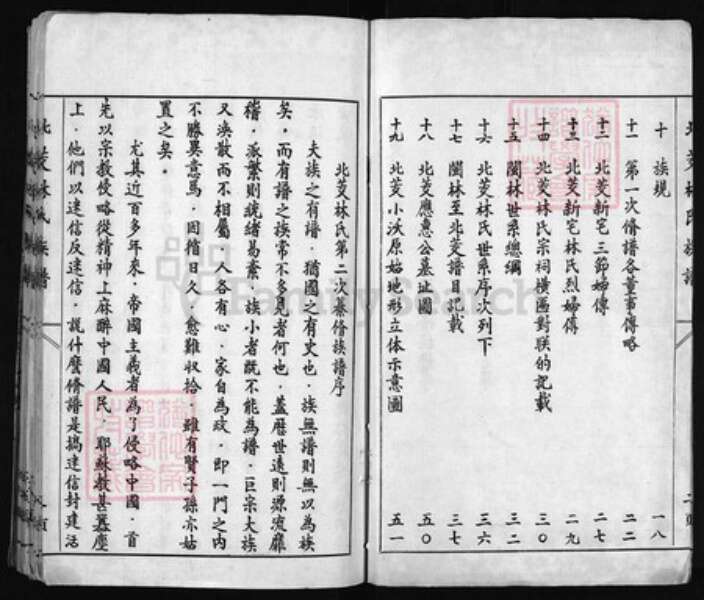 十 族規 一八
十一 第一次修譜各董事傳略 二二
十二 北茭新宅三節婦傳 二七
十三 北茭新宅林氏烈婦傳 二九
十四 北茭林氏宗祠橫匾對联的記載 三〇
十五 閩林世系總綱 三二
十六 北茭林氏世系序次列下 三六
十七 閩林至北茭譜目記載 三七
十八 北茭應惠公墓址圖 五〇
十九 北茭小沃原始地形立体示意圖 五一
北茭林氏第二次纂修族譜序
夫族之有譜．猶國之有史也．族無譜則無以為族
矣．而有譜之族常不多見者何也．蓋歷世遠則源流靡
稽．派繁則統緒易紊．族小者既不能為譜．巨宗大族
又渙散而不相屬．人各有心．家自為政．即一門之內
不勝異意焉．因循日久．愈難収拾．雖有賢子孫亦姑
置之矣．
尤其近百多年來．帝國主義者為了侵略中國．首
先以宗教侵略從精神上麻醉中國人民．耶穌教甚囂塵
上．他們以迷信反迷信．說什麼脩譜是搞迷信封建活
北茭林氏族譜
FamilySearch